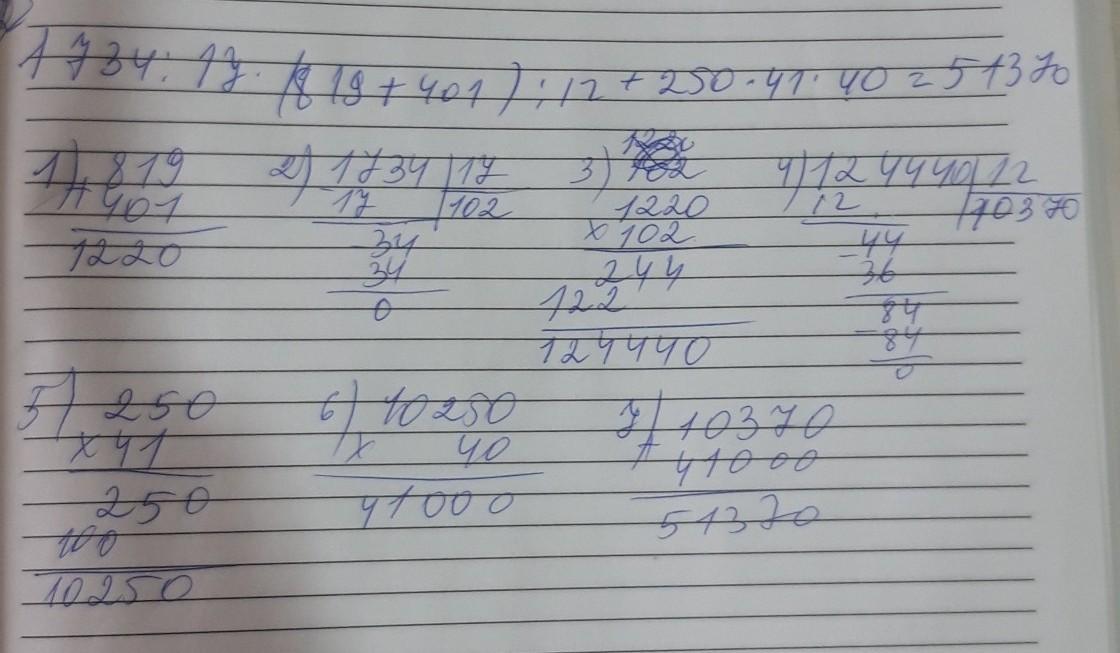 1734 : 17 · (819 + 401) : 12 + 250 · 41 · 40 = 51370
1) 819 2) 1734 | 17 3) 4) 124440 | 12
+ 401 - 17 | 102 1220 12 | 10370
1220 34 x 102 - 44
34 244 36
0 122 84
124440 - 84
0
5) 250 6) 10250 7) 10370
x 41 x 40 + 41000
250 41000 51370
100
10250